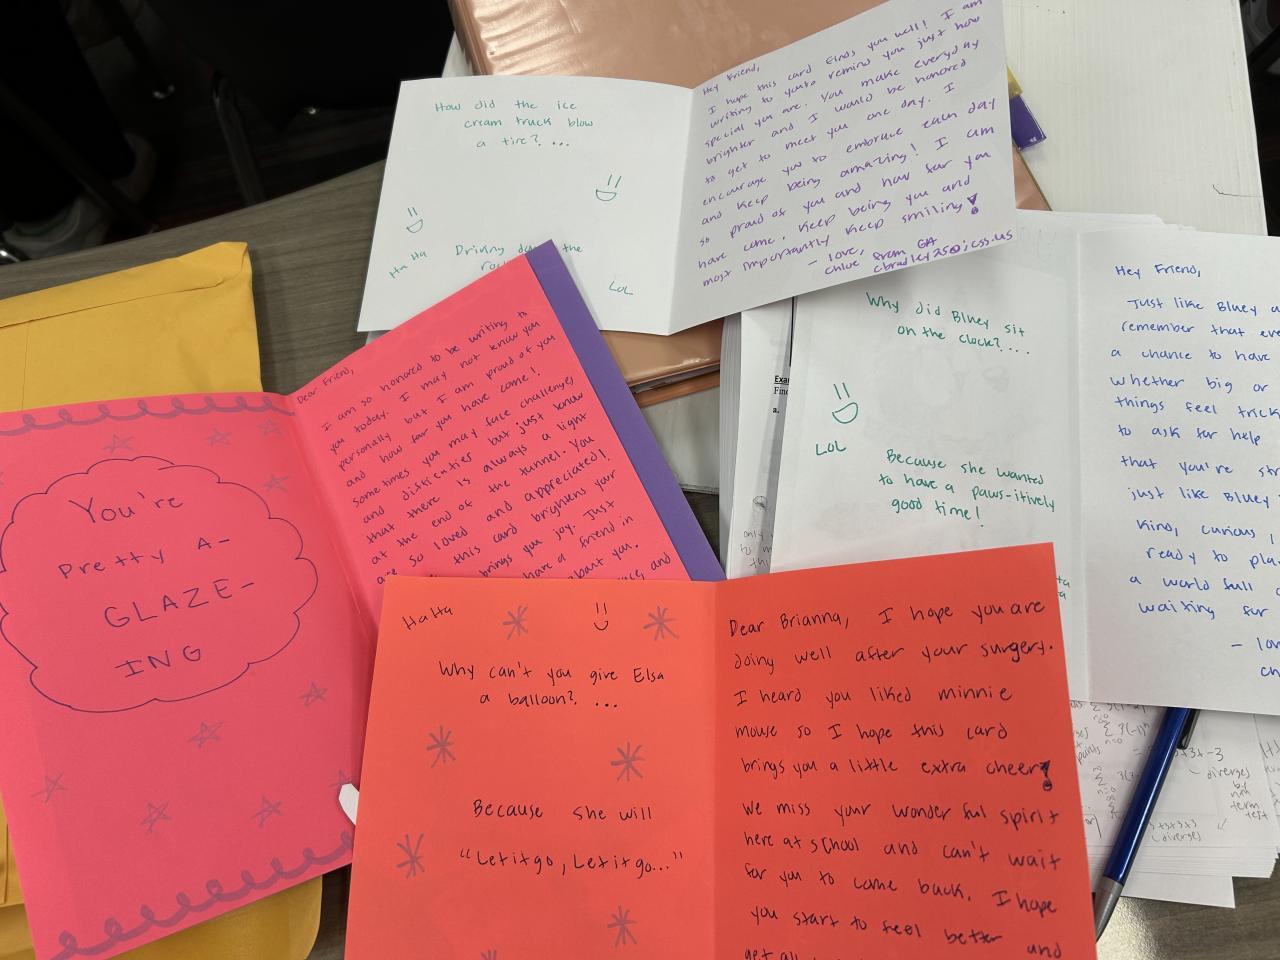 How did the ice
cream truck blow
a tire?...
Ha Ha
Driving the
LOL
Hey Friend,
I hope this card finds you well! I am
writing to you to remind you just how
special you are. You make everyday
brighter and I would be honored
to get to meet you one day. I
encourage you to embrace each day
and keep being amazing! I am
so proud of you and how far you
have come. Keep being you and
most importantly keep smiling!
- love,
chloe from GA
You're
Pretty A-
GLAZE-
ING
Dear Friend,
I am so honored to be writing to
you today. I may not know you
personally but I am proud of you
and how far you have come!
Sometimes you may face challenges
and but just know
that there is always a light
at the end of the tunnel. You
are so loved and appreciated!
this card brightens your
brings you joy. Just
have a friend in
about you.
and
Why did Bluey sit
on the clock?...
LOL
Because she wanted
to have a paws-itively
good time!
Hey Friend,
Just like Bluey
remember that
a chance to have
whether big or
things feel
to ask for help
that you're
just like Bluey
Kind, curious,
ready to
a world full
waiting for
Ha Ha
Why can't you give Elsa
a balloon?...
Because she will
"Let it go, Let it go..."
Dear Brianna, I hope you are
doing well after your surgery.
I heard you liked minnie
mouse so I hope this card
brings you a little extra cheer!
We miss your wonderful spirit
here at school and can't wait
for you to come back. I hope
you start to feel better and
get all
diverges
term
test
3+3+3+3
(diverges